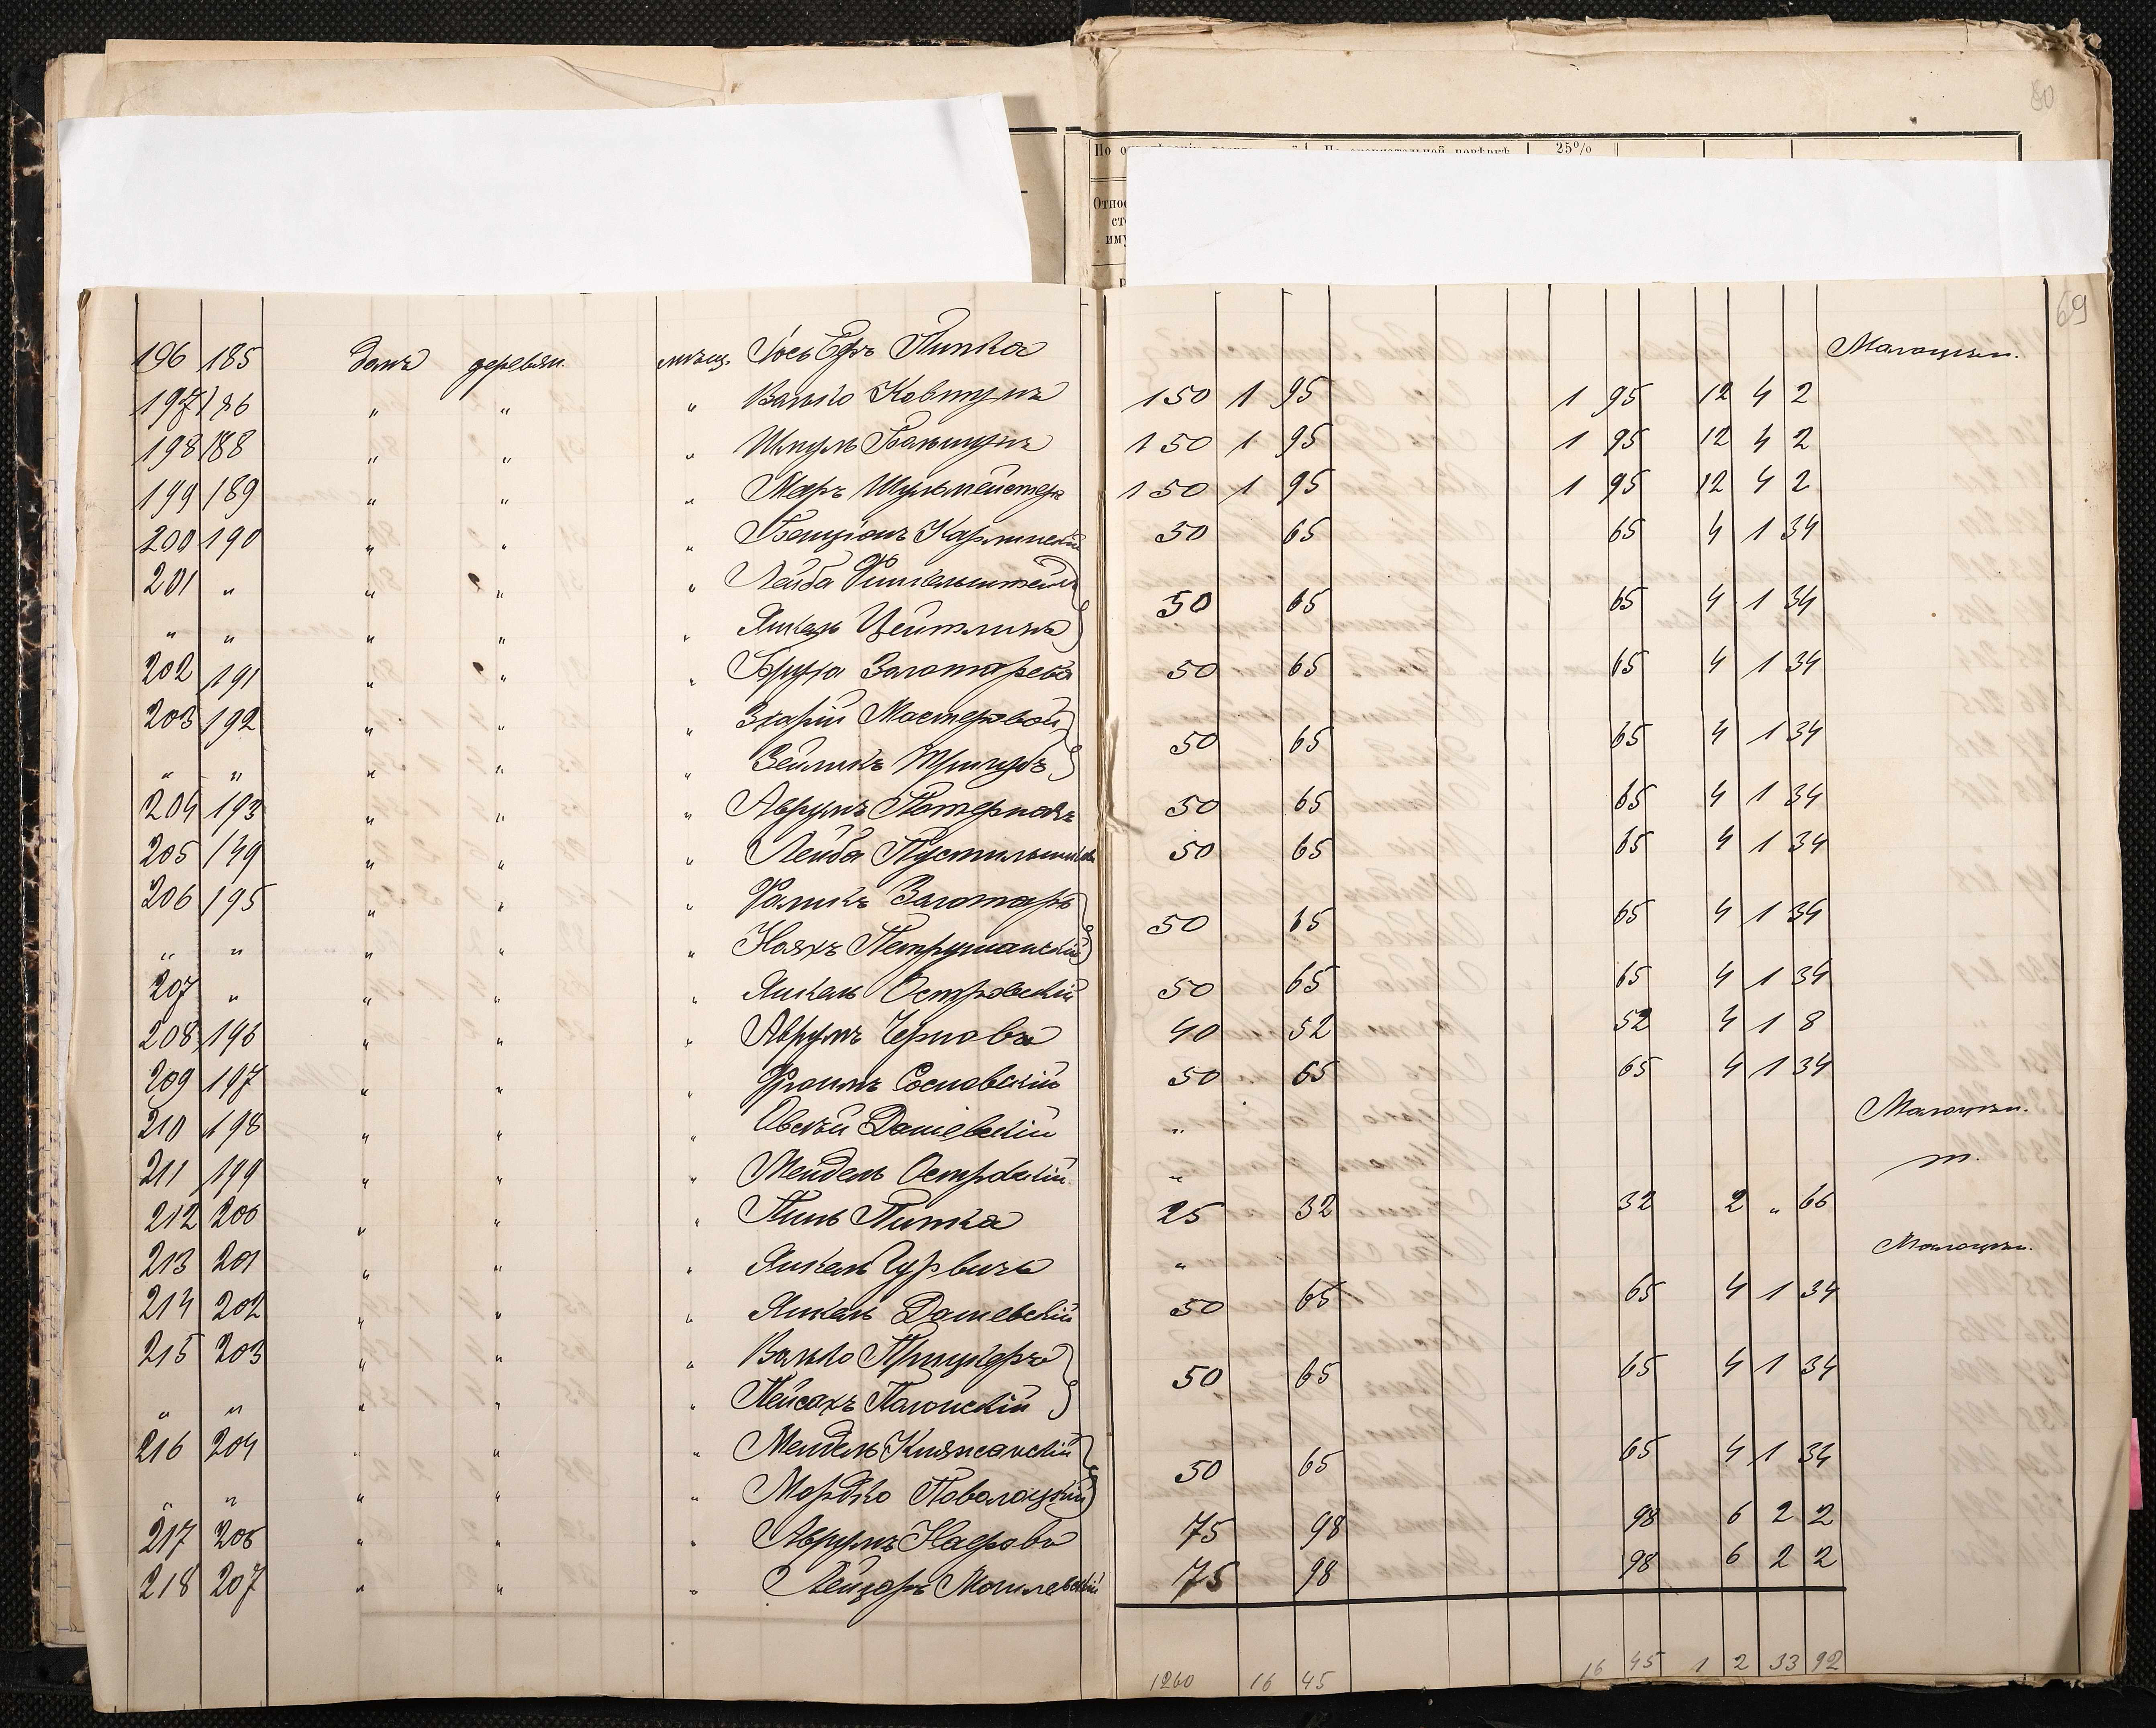 80
25%
69
196 185 домъ деревян. мѣщ. Іось Ефр. Пинка Малоцѣн.
197 186 „ „ „ Валько Ковтунъ 150 1 95 1 95 12 4 2
198 188 „ „ „ Шмуль Бальшунъ 150 1 95 1 95 12 4 2
199 189 „ „ „ Меръ Шульмейстеръ 150 1 95 1 95 12 4 2
200 190 „ „ „ Бенціонъ Карлинскій 50 65 65 4 1 34
201 „ „ „ „ Лейба Финкельштейнъ
50 65 65 4 1 34
„ „ „ „ „ Янкель Цейтлинъ
202 191 „ „ „ Бруха Золотарева 50 65 65 4 1 34
203 192 „ „ „ Зхарій Мастеровой
50 65 65 4 1 34
„ „ „ „ „ Зейликъ
204 193 „ „ „ Аврумъ 50 65 65 4 1 34
205 149 „ „ „ Лейба Пустильникъ 50 65 65 4 1 34
206 195 „ „ „ Фаликъ Золотарь
50 65 65 4 1 34
„ „ „ „ „ Ноахъ Петрушанскій
207 „ „ „ „ Янкель Островскій 50 65 65 4 1 34
208 196 „ „ „ Аврумъ Черновъ 40 52 52 4 1 8
209 197 „ „ „ Фроимъ Сосновскій 50 65 65 4 1 34
210 198 „ „ „ Овсѣй Дашевскій „ Малоцѣн.
211 199 „ „ „ Мендель Островскій „ т.
212 200 „ „ „ Пинь Пинка 25 32 32 2 „ 66
213 201 „ „ „ Янкель Гурвичъ „ Малоцѣн.
214 202 „ „ „ Янкель Дашевскій 50 65 65 4 1 34
215 203 „ „ „ Валько Прицкеръ
50 65 65 4 1 34
„ „ „ „ „ Пейсахъ Полонскій
216 204 „ „ „ Мендель Княжанскій
50 65 65 4 1 34
„ „ „ „ „ Мордко Поволоцкій
217 206 „ „ „ Аврумъ 75 98 98 6 2 2
218 207 „ „ „ Лейзоръ Могилевскій 75 98 98 6 2 2
1260 16 45 16 45 1 2 33 92